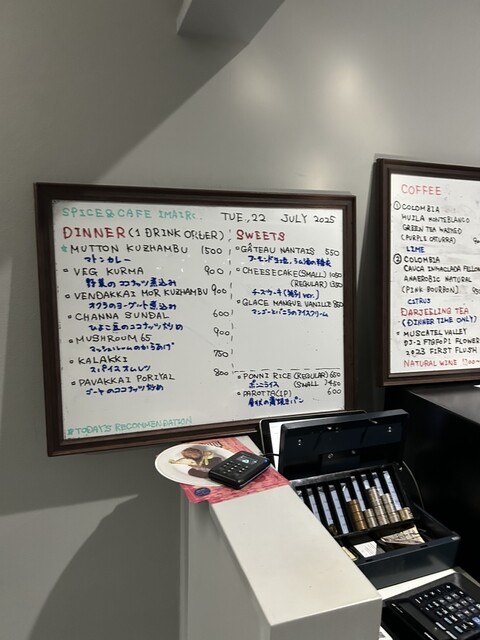 SPICE&CAFE IMAIRU.. TUE, 22 JULY 2025
DINNER (1 DRINK ORDER)
*MUTTON KUZHAMBU 1500
マトンカレー
VEG KURMA 900
野菜のココナッツ煮込み
VENDAKKAI MOR KUZHAMBU 900
オクラのヨーグルト煮込み
CHANNA SUNDAL 600
ひよこ豆のココナッツ炒め
MUSHROOM 65 900
マッシュルームのからあげ
KALAKKI 750
スパイスオムレツ
PAVAKKAI PORIYAL 800
ゴーヤのココナッツ炒め
*TODAY'S RECOMMENDATION
SWEETS
GÂTEAU NANTAIS 550
CHEESECAKE (SMALL) 1050
(REGULAR) 1350
チーズケーキ
GLACE MANGUE VANILLE 850
マンゴーとバニラのアイスクリーム
PONNI RICE (REGULAR) 650
ポンニライス (SMALL) 450
PAROTTA (1P) 600
COFFEE
① COLOMBIA
HUILA MONTEBLANCO
GREEN TEA WASHED
(PURPLE CATURRA)
LIME
② COLOMBIA
CAUCA INMACULADA FELLOW
ANAEROBIC NATURAL
(PINK BOURBON)
CITRUS
DARJEELING TEA
(DINNER TIME ONLY)
MUSCATEL VALLEY
DJ-2 FTGFOP1 FLOWER
2023 FIRST FLUSH
NATURAL WINE